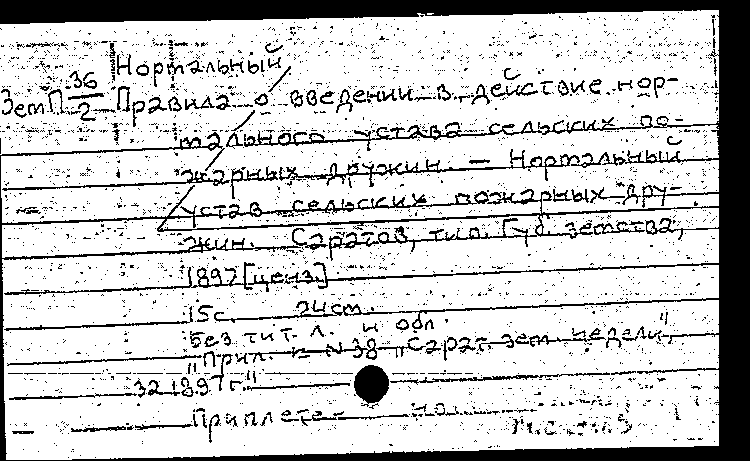 Нормальный
ЗемП 36/2 Правила о введении в действие нор-
мального устава сельских по-
жарных дружин. — Нормальный
устав сельских пожарных дру-
жин. Саратов, тип. Губ. земства,
1897 [ценз.]
15с. 24см.
Без тит. л. и обл.
"Прил. к N38 "Сарат. зем. недели",
за 1897 г."
Приплете- но